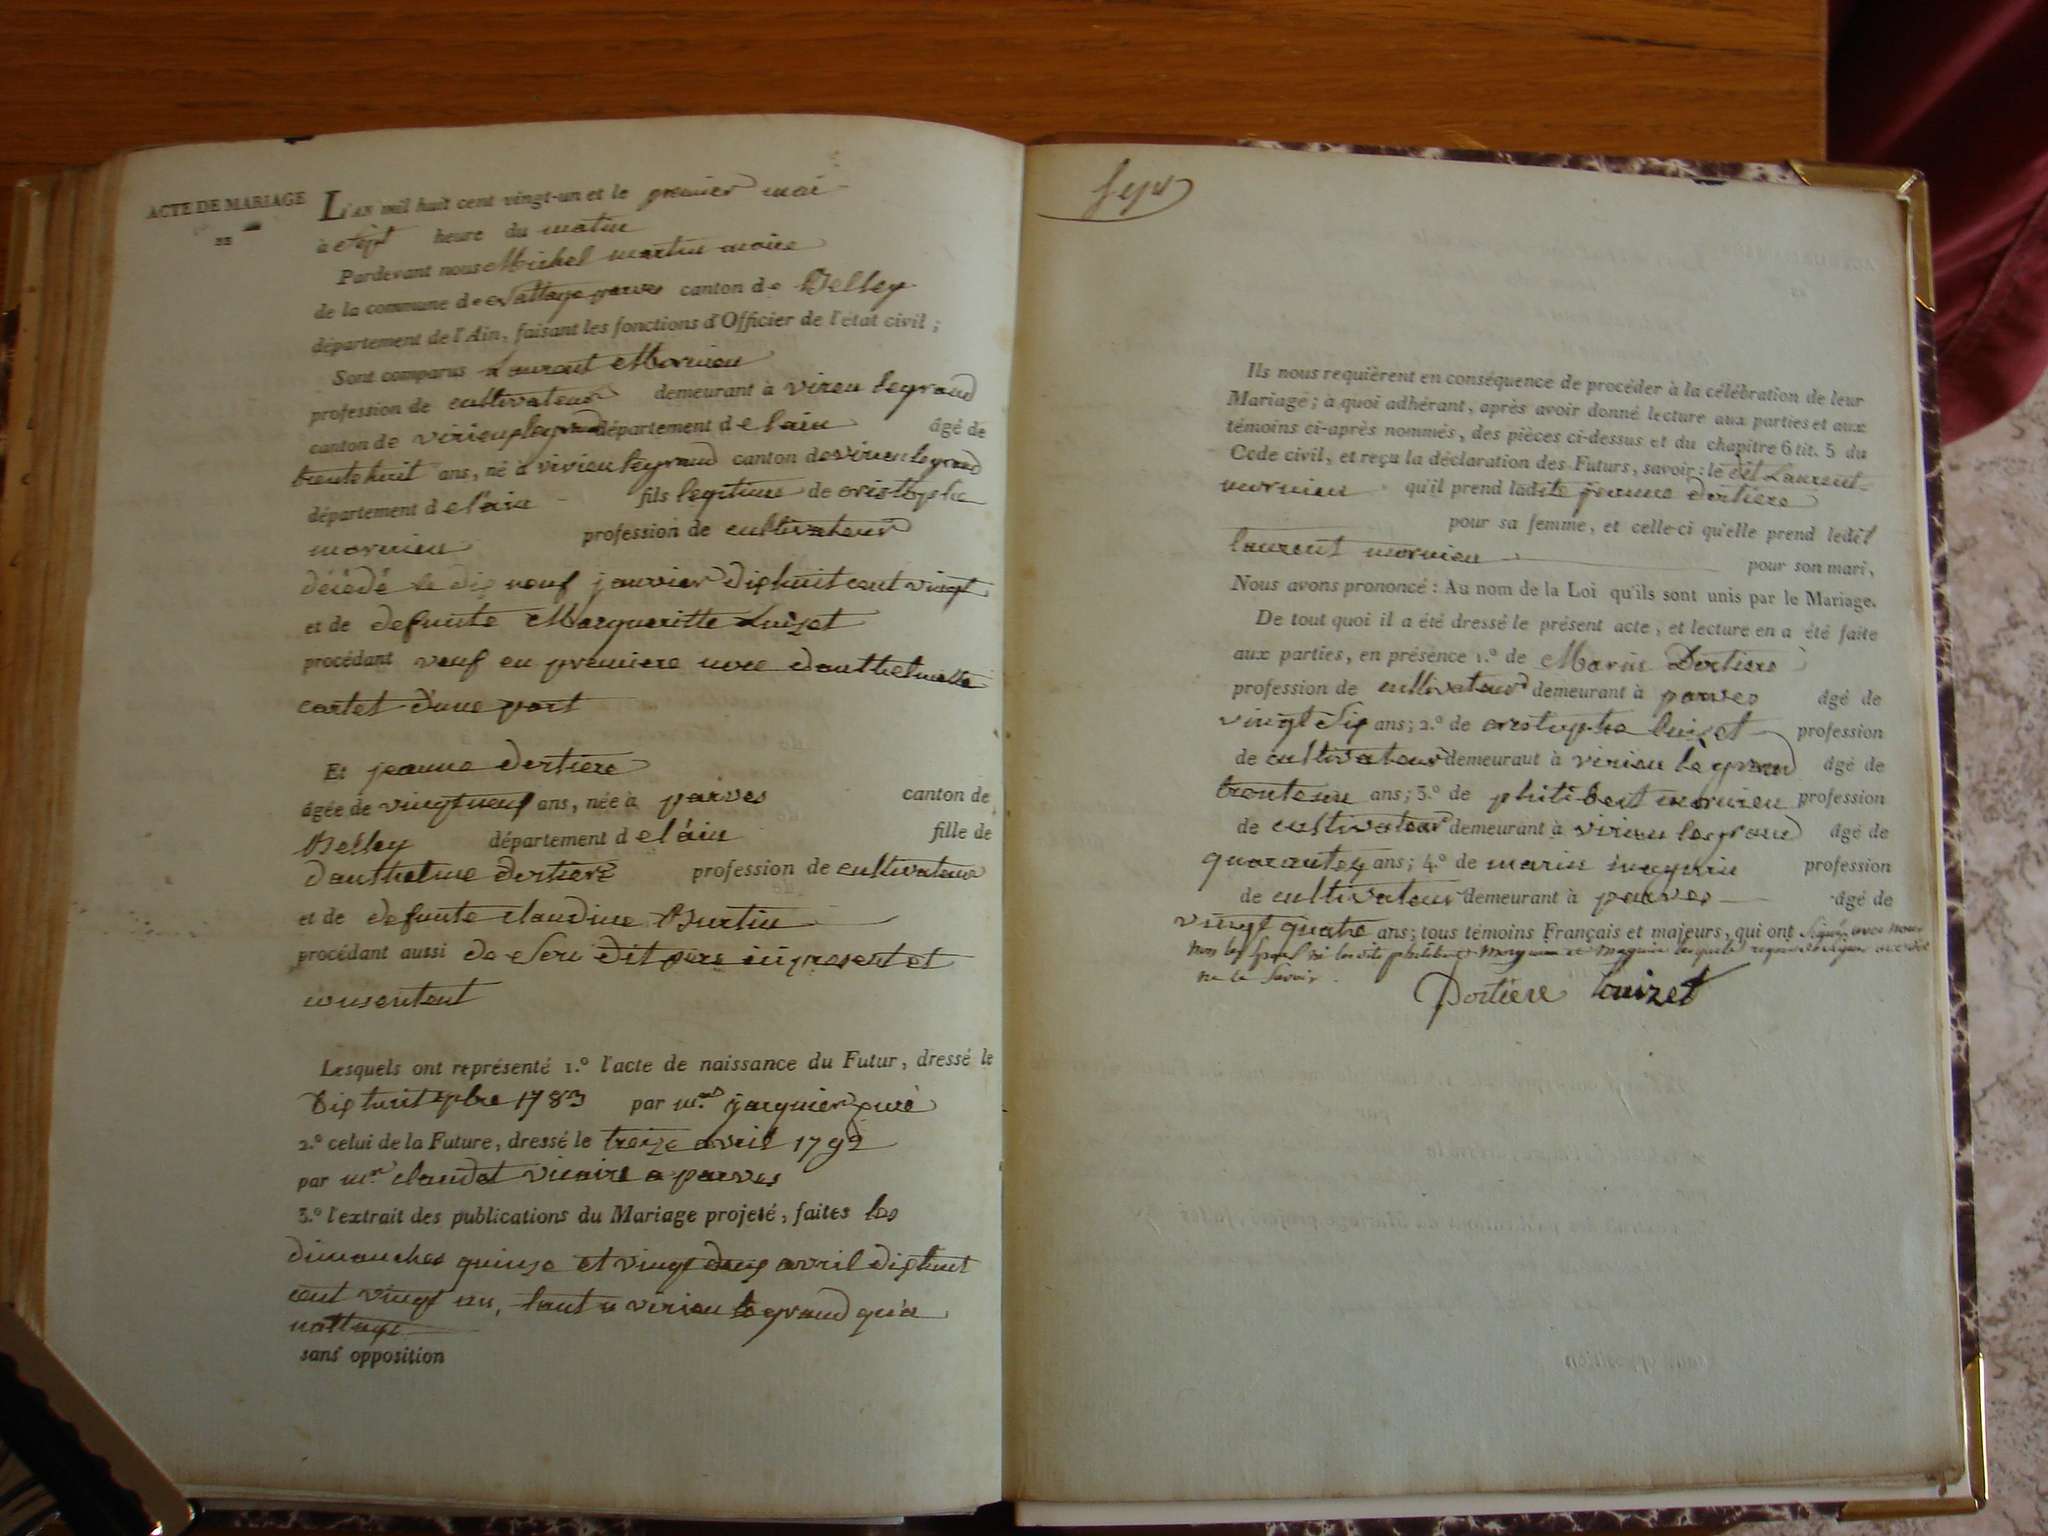 ACTE DE MARIAGE
L'AN mil huit cent vingt-un et le premier mai
à sept heure du matin
Pardevant nous Michel martin maire
de la commune de nattage parves canton de Belley
département de l'Ain, faisant les fonctions d'Officier de l'état civil ;
Sont comparus Laurent Mornieu
profession de cultivateur demeurant à virieu legrand
canton de virieu legrand département d e l'ain âgé de
trente huit ans, né à virieu legrand canton de virieu le grand
département d e l'ain fils legitime de cristophe
mornieu profession de cultivateur
décédé le dix neuf janvier dixhuit cent vingt
et de defunte Margueritte Luizet
procédant veuf en premiere noce d'anthelmette
cartet d'une part
Et jeanne dortiere
âgée de vingt neuf ans, née à parves canton de
Belley département d e l'ain fille de
d'anthelme dortiere profession de cultivateur
et de defunte claudine Burtin
procédant aussi de son dit pere ici present et
consentent
Lesquels ont représenté 1.º l'acte de naissance du Futur, dressé le
dixhuit xbre 1783 par mr jacquier curé
2.º celui de la Future, dressé le treize avril 1792
par mr claudet vicaire a parves
3.º l'extrait des publications du Mariage projeté, faites les
dimanches quinze et vingt deux avril dixhuit
cent vingt un, tant a virieu le grand qu'a
nattage
sans opposition
sept
Ils nous requièrent en conséquence de procéder à la célébration de leur
Mariage ; à quoi adhérant, après avoir donné lecture aux parties et aux
témoins ci-après nommés, des pièces ci-dessus et du chapitre 6 tit. 5 du
Code civil, et reçu la déclaration des Futurs, savoir : le dit Laurent
mornieu qu'il prend ladite jeanne dortiere
pour sa femme, et celle-ci qu'elle prend ledit
laurent mornieu pour son mari,
Nous avons prononcé : Au nom de la Loi qu'ils sont unis par le Mariage.
De tout quoi il a été dressé le présent acte, et lecture en a été faite
aux parties, en présence 1.º de Marin Dortiere
profession de cultivateur demeurant à parves âgé de
vingt six ans ; 2.º de cristophe luizet profession
de cultivateur demeurant à virieu le grand âgé de
trente un ans ; 3.º de philibert mornieu profession
de cultivateur demeurant à virieu le grand âgé de
quarante ans ; 4.º de marin maguin profession
de cultivateur demeurant à parves âgé de
vingt quatre ans ; tous témoins Français et majeurs, qui ont signé avec nous
non les ni lesdits philibert et requis de signer
ne le savoir.
Dortiere Luizet